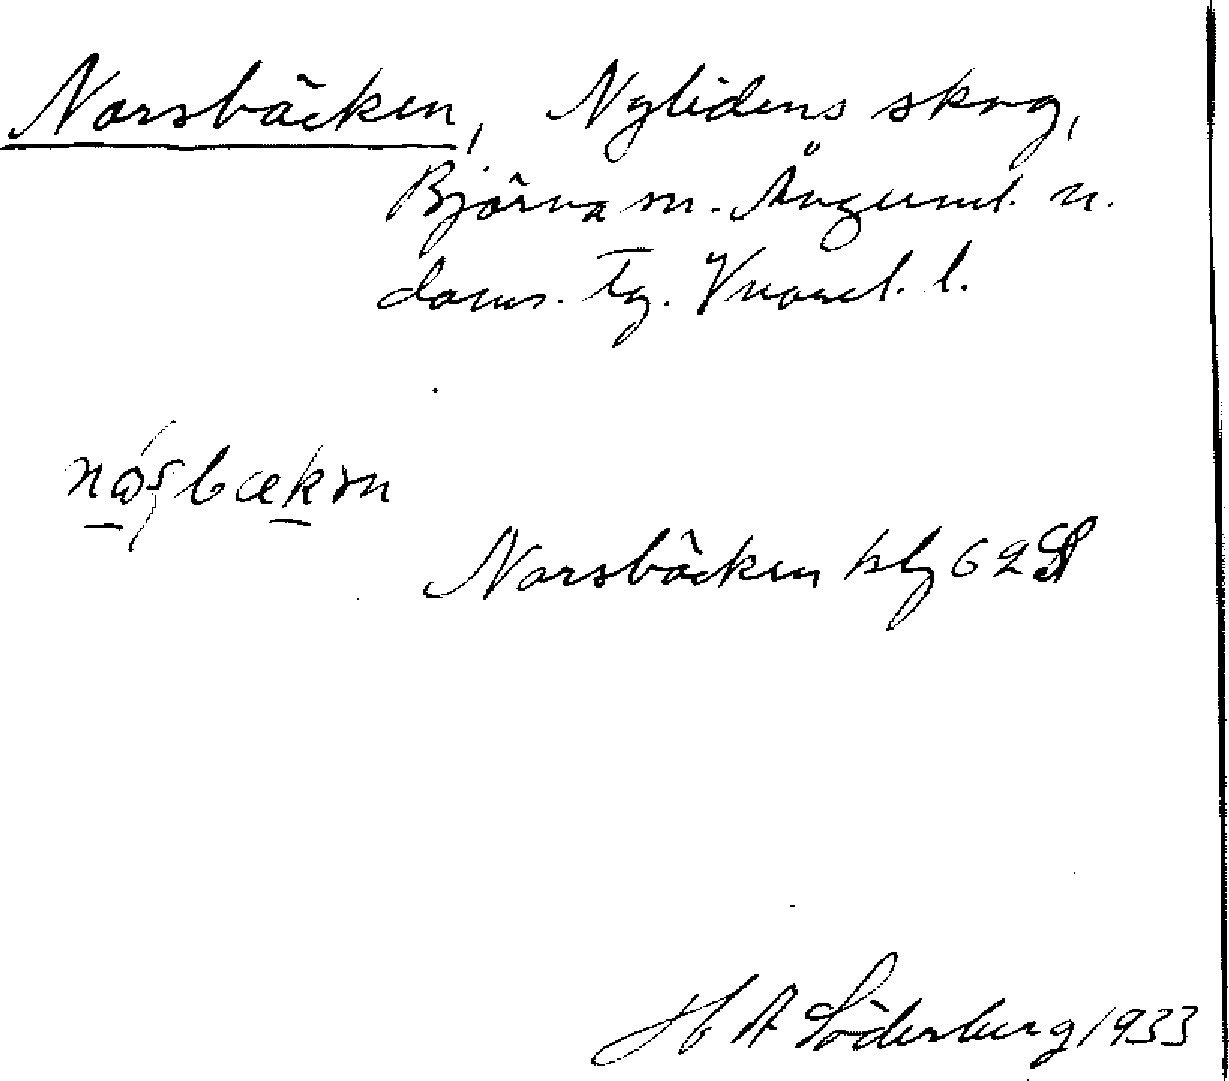 Norsbäcken, Nylidens skog,
Björna sn. Ångerml. n.
doms. Tg. Vnorrl. l.
Norsbäcken kbl 62
H A Söderberg 1933